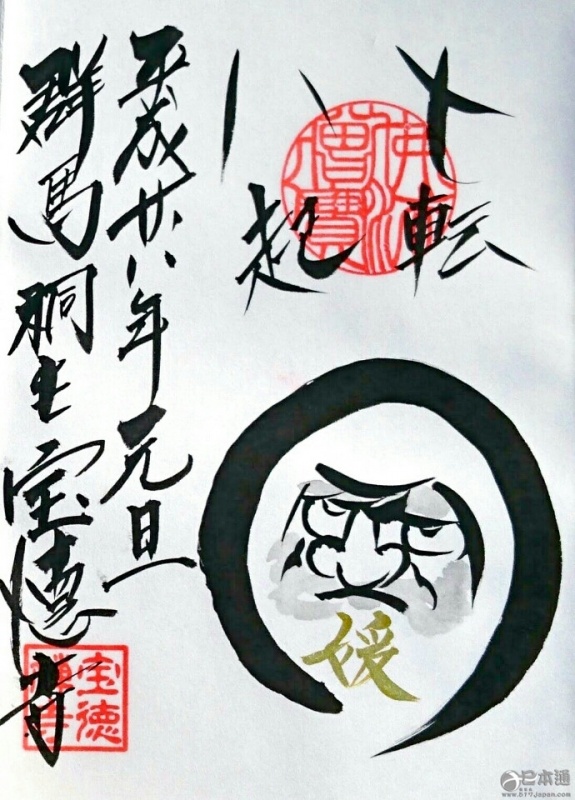 七転
八起
佛法
僧寶
平成廿八年元旦
群馬桐生宝徳寺
宝徳
禅寺
日本通
www.517japan.com